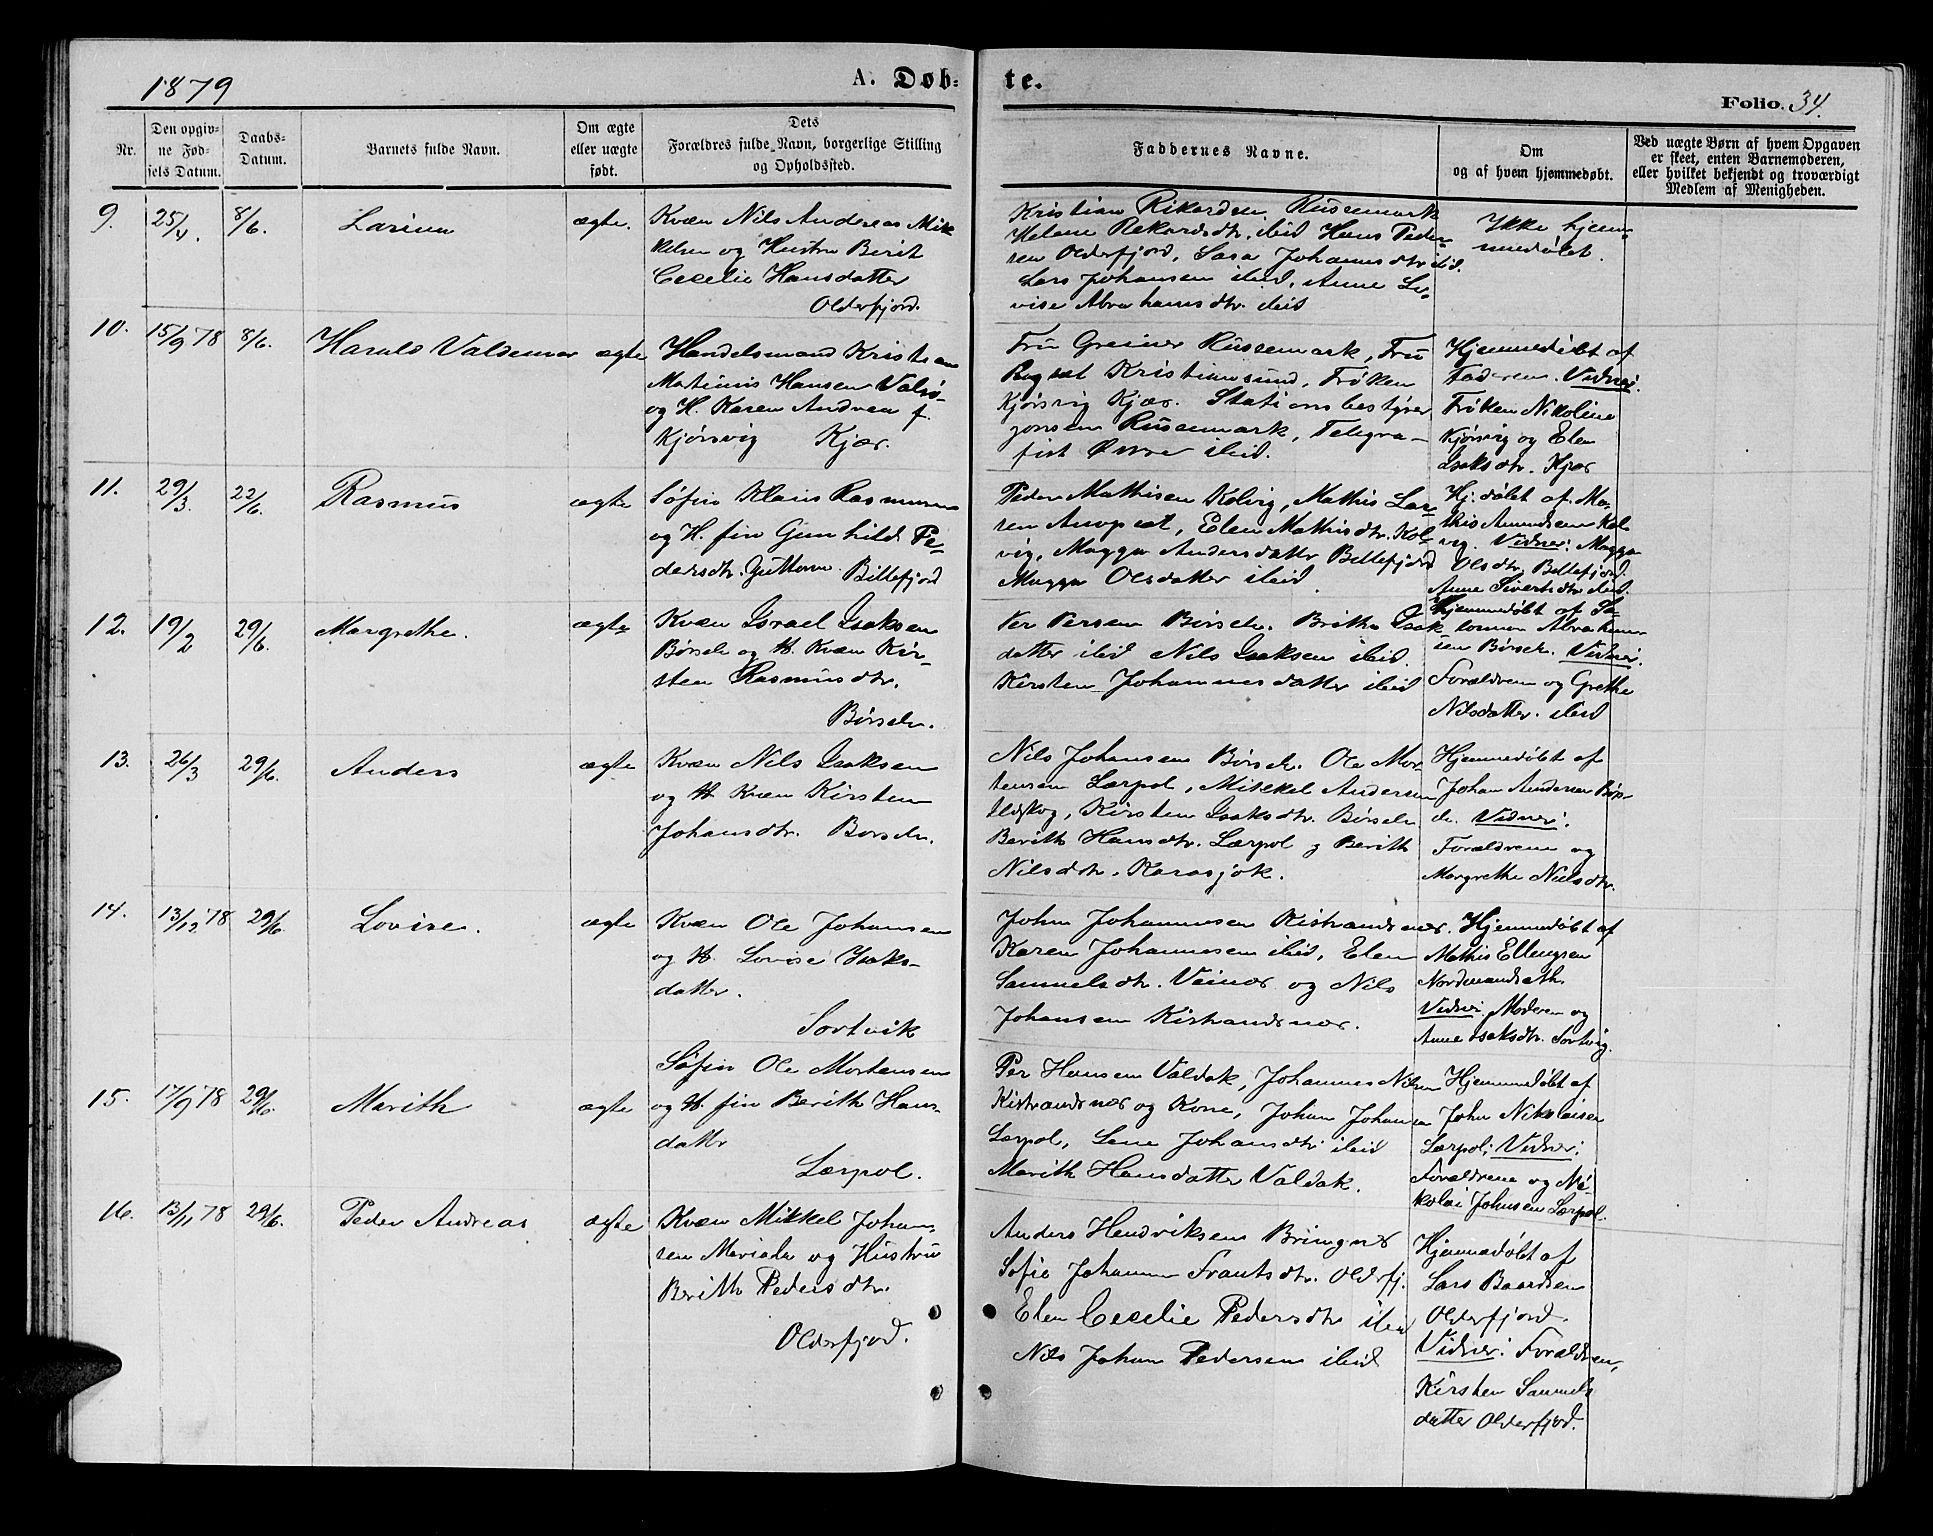 1879
A. Døb-
te.
Folio. 34.
Nr.
Den opgiv-
ne Fød-
sels Datum.
Daabs-
Datum.
Barnets fulde Navn.
Om ægte
eller uægte
født.
Dets
Forældres fulde Navn, borgerlige Stilling
og Opholdssted.
Faddernes Navne.
Om
og af hvem hjemmedøbt.
Ved uægte Børn af hvem Opgaven
er skeet, enten Barnemoderen,
eller hvilket bekjendt og troværdigt
Medlem af Menigheden.
9. 25/4. 8/6. Larina ægte.
Kvæn Nils Andreas Mik
kelsen og Hustru Berit
Cecelie Hansdatter
Olderfjord.
Kristian Rikardsen Russemark
Helene Rekardsdtr. ibid Hans Peder-
sen Olderfjord, Sara Johannsdtr ibid.
Lars Johansen ibid, Anne Lo-
vise Abrahamsdtr. ibid
Ikke hjem-
medøbt.
10. 15/9 78 8/6. Harald Valdemar ægte
Handelsmand Kristian
Martinus Hansen Valsø-
og H. Karen Andrea f.
Kjørsvig Kjær.
Fru Greiner Russemark, Fru
Kristiansund, Frøken
Kjørsvig Kjær. Stationsbestyrer
Jonsen Russemark, Telegra-
fist ibid.
Hjemmedøbt af
Faderen. Vidner:
Frøken Nikoline
Kjørsvig og Elen
Isaksdtr. Kjær
11. 29/3. 22/6. Rasmus ægte
Søfin Klaus Rasmussen
og H. fin Gunhild Pe-
dersdtr. Guttorm Billefjord
Peder Mathisen Kolvig, Mathis Lar-
sen , Elen Mathisdtr. Kol-
vig, Magga Andersdatter Billefjord
Magga Olsdatter ibid
Hj. døbt af Ma-
this Amundsen Kol-
vig. Vidner: Magga
Olsdtr. Billefjord,
Anne Sivertsdtr ibid.
12. 19/2 29/6. Margrethe. ægte
Kvæn Israel Isaksen
Børselv og H. Kvæn Kir-
sten Rasmusdtr.
Børselv.
Per Persen Børselv. Britha Isak-
datter ibid Nils Isaksen ibid.
Kirsten Johannesdatter ibid
Hjemmedøbt af Sa-
lomon Abraham-
sen Børselv. Vidner:
Forældrene og Grethe
Nilsdatter. ibid
13. 26/3 29/6. Anders ægte
Kvæn Nils Isaksen
og H Kvæn Kirsten
Johansdtr. Børselv.
Nils Johansen Børselv. Ole Mor-
tensen Lærpol, Mikkel Andersen
, Kirsten Isaksdtr. Børselv
Berith Hansdtr. Lærpol og Berith
Nilsdtr. Karasjok.
Hjemmedøbt af
Johan Andersen
Vidner:
Forældrene og
Margrethe Nielsdtr.
14. 13/12 78 29/6. Lovise. ægte
Kvæn Ole Johansen
og H. Lovise Isaks-
datter.
Sortvik
John Johannesen Kistrandsnær.
Karen Johannesen ibid, Elen
Samuelsdtr. Veinæs og Nils
Johansen Kistrandsnær.
Hjemmedøbt af
Mathis Ellingsen
Nordmandseth.
Vidner: Moderen og
Anne Isaksdtr. Sortvig.
15. 17/9 78 29/6. Marith ægte
Søfin Ole Mortensen
og H. fin Berith Hans-
datter
Lærpol.
Per Hansen Valdak, Johannes Nilsen
Kistrandsnær og Kone, Johan Johansen
Lærpol, Lene Johansdtr ibid
Marith Hansdatter Valdak.
Hjemmedøbt af
John Nikolaisen
Lærpol; Vidner:
Forældrene og Ni-
kolai Johnsen Lærpol.
16. 13/11 78 29/6. Peder Andreas ægte
Kvæn Mikkel Johan-
sen og Hustru
Berith Pedersdtr.
Olderfjord.
Anders Hendriksen Bringnes
Sofie Johanne Frantsdtr. Olderfj.
Elen Cecelie Pedersdtr ibid
Nils Johan Pedersen ibid
Hjemmedøbt af
Lars Baardsen
Olderfjord.
Vidner: Forældren,
Kirsten Samuels
datter Olderfjord.